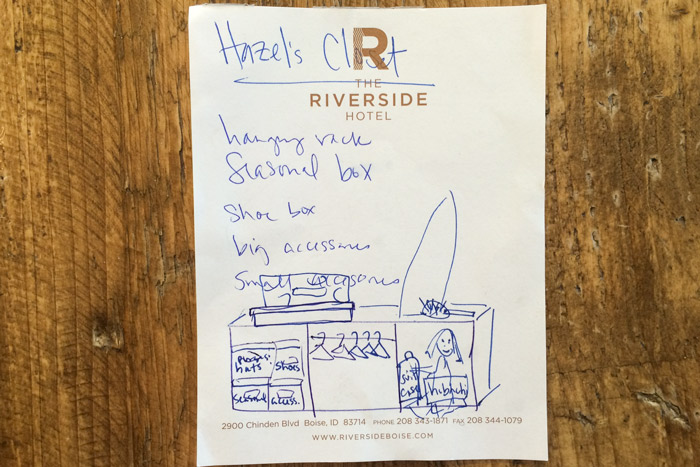 Hazel's Closet
R
THE
RIVERSIDE
HOTEL
hanging rack
Seasonal box
Shoe box
big accessories
Small accessories
hats
shoes
seasonal
access.
suit
case
hibachi
2900 Chinden Blvd Boise, ID 83714 PHONE 208 343-1871 FAX 208 344-1079
WWW.RIVERSIDEBOISE.COM